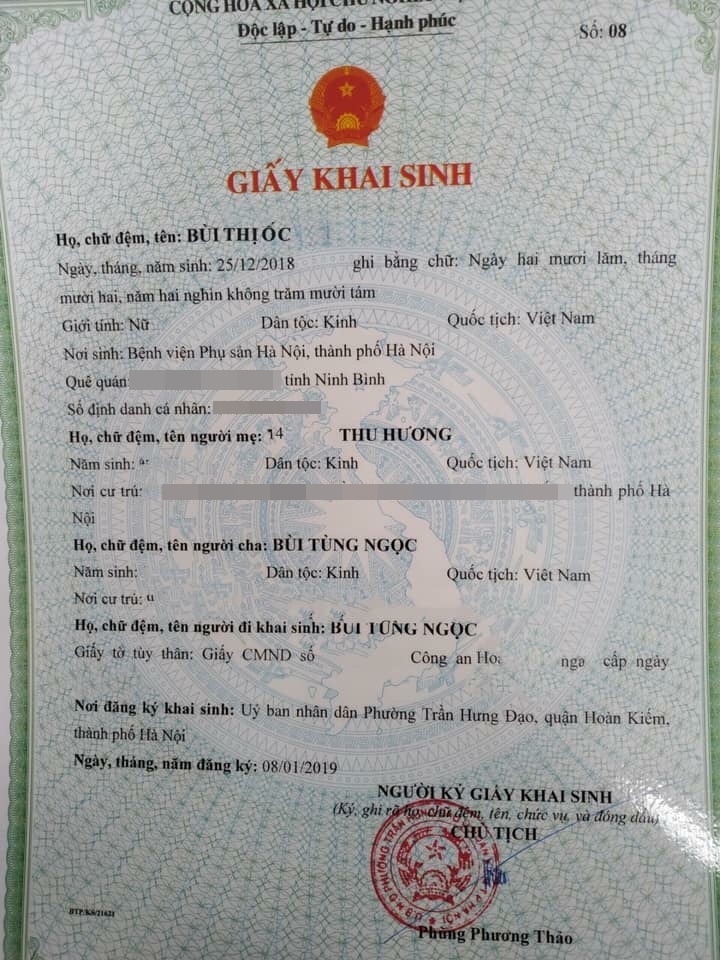 CỘNG HÒA XÃ HỘI CHỦ NGHĨA
Độc lập - Tự do - Hạnh phúc
Số: 08
GIẤY KHAI SINH
Họ, chữ đệm, tên: BÙI THỊ ỐC
Ngày, tháng, năm sinh: 25/12/2018 ghi bằng chữ: Ngày hai mươi lăm, tháng
mười hai, năm hai nghìn không trăm mười tám
Giới tính: Nữ Dân tộc: Kinh Quốc tịch: Việt Nam
Nơi sinh: Bệnh viện Phụ sản Hà Nội, thành phố Hà Nội
Quê quán: tỉnh Ninh Bình
Số định danh cá nhân:
Họ, chữ đệm, tên người mẹ: THU HƯƠNG
Năm sinh: Dân tộc: Kinh Quốc tịch: Việt Nam
Nơi cư trú: thành phố Hà
Nội
Họ, chữ đệm, tên người cha: BÙI TÙNG NGỌC
Năm sinh: Dân tộc: Kinh Quốc tịch: Việt Nam
Nơi cư trú:
Họ, chữ đệm, tên người đi khai sinh: BÙI TÙNG NGỌC
Giấy tờ tùy thân: Giấy CMND số Công an nga cấp ngày
Nơi đăng ký khai sinh: Uỷ ban nhân dân Phường Trần Hưng Đạo, quận Hoàn Kiếm,
thành phố Hà Nội
Ngày, tháng, năm đăng ký: 08/01/2019
NGƯỜI KÝ GIẤY KHAI SINH
(Ký, ghi rõ họ, chữ đệm, tên, chức vụ, và đóng dấu)
CHỦ TỊCH
BTP/KS/21621
Phùng Phương Thảo